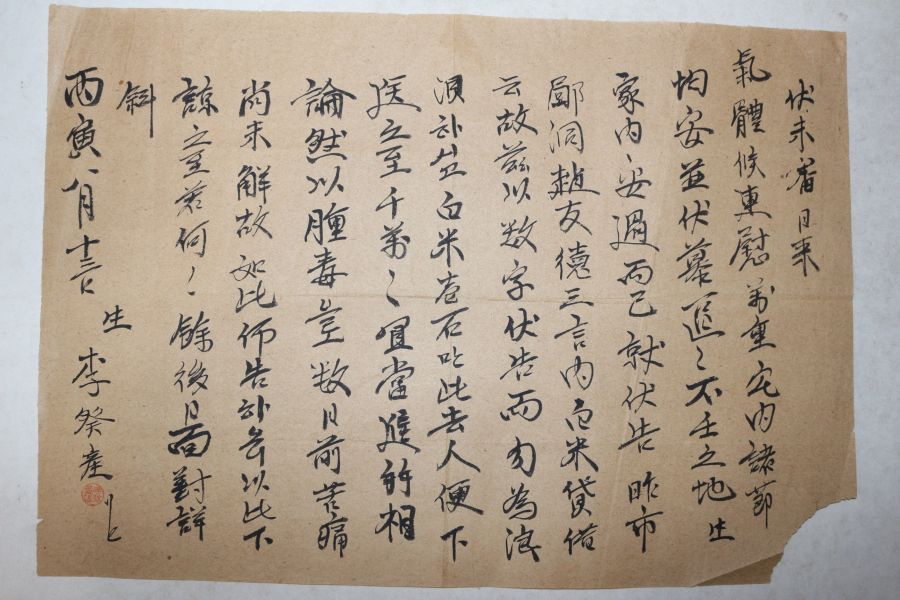 伏未審日來
氣體候連慰萬重宅內諸節
均安並伏慕區〻不任之地生
家內安過而已就伏告昨市
鄖洞趙友德三言內白米貸借
云故茲以数字伏告而勿為浪
白米壱石此去人便下
送之至千萬〻宜當進計相
論然以腫毒數日前苦痛
尚未解故如此仰告以此下
諒之至若何〻餘後日面對詳
斜
丙寅八月十三日
生李癸產